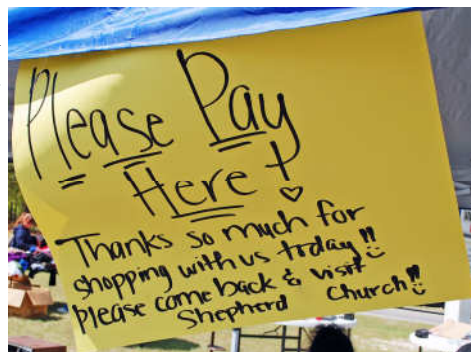 Please Pay
Here!
Thanks so much for
shopping with us today!!
please come back & visit
Shepherd Church!!